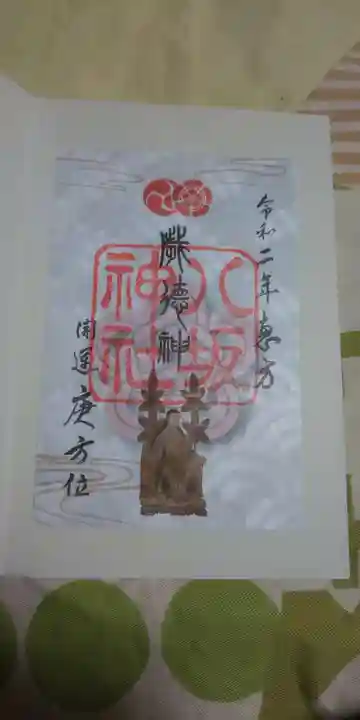 令和二年恵方
歳德神
八坂
神社
開運庚方位